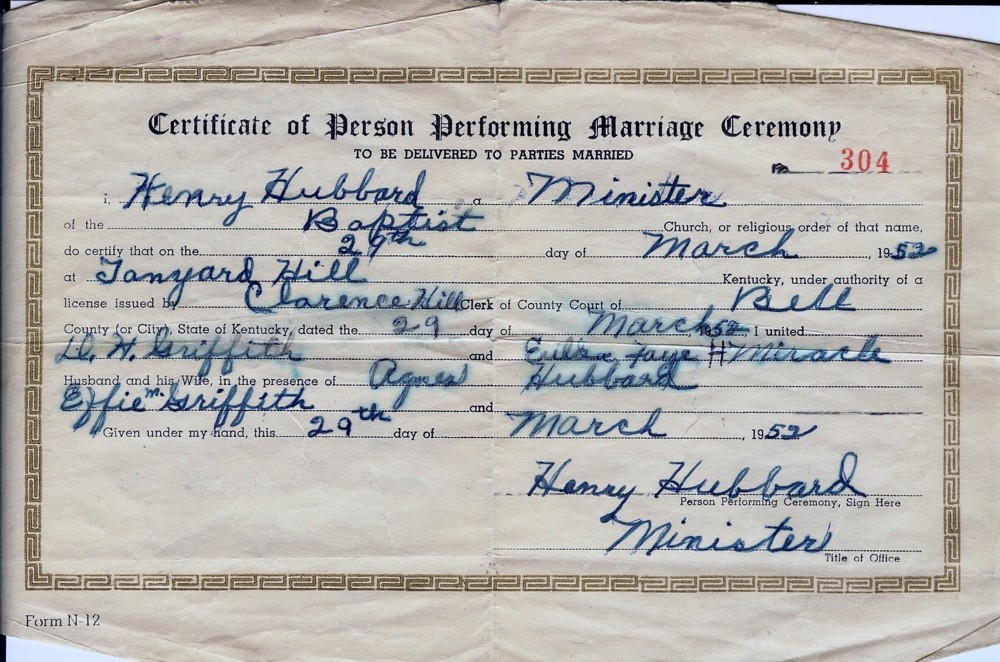 Certificate of Person Performing Marriage Ceremony
TO BE DELIVERED TO PARTIES MARRIED
No. 304
I, Henry Hubbard a Minister
of the Baptist Church, or religious order of that name,
do certify that on the 29th day of March, 1952
at Tanyard Hill Kentucky, under authority of a
license issued by Clarence Hill Clerk of County Court of Bell
County (or City), State of Kentucky, dated the 29 day of March 1952, I united
H. Griffith and Faye Miracle
Husband and his Wife, in the presence of Agnes Hubbard
Effie M. Griffith and
Given under my hand, this 29th day of March, 1952
Henry Hubbard
Person Performing Ceremony, Sign Here
Minister
Title of Office
Form N-12